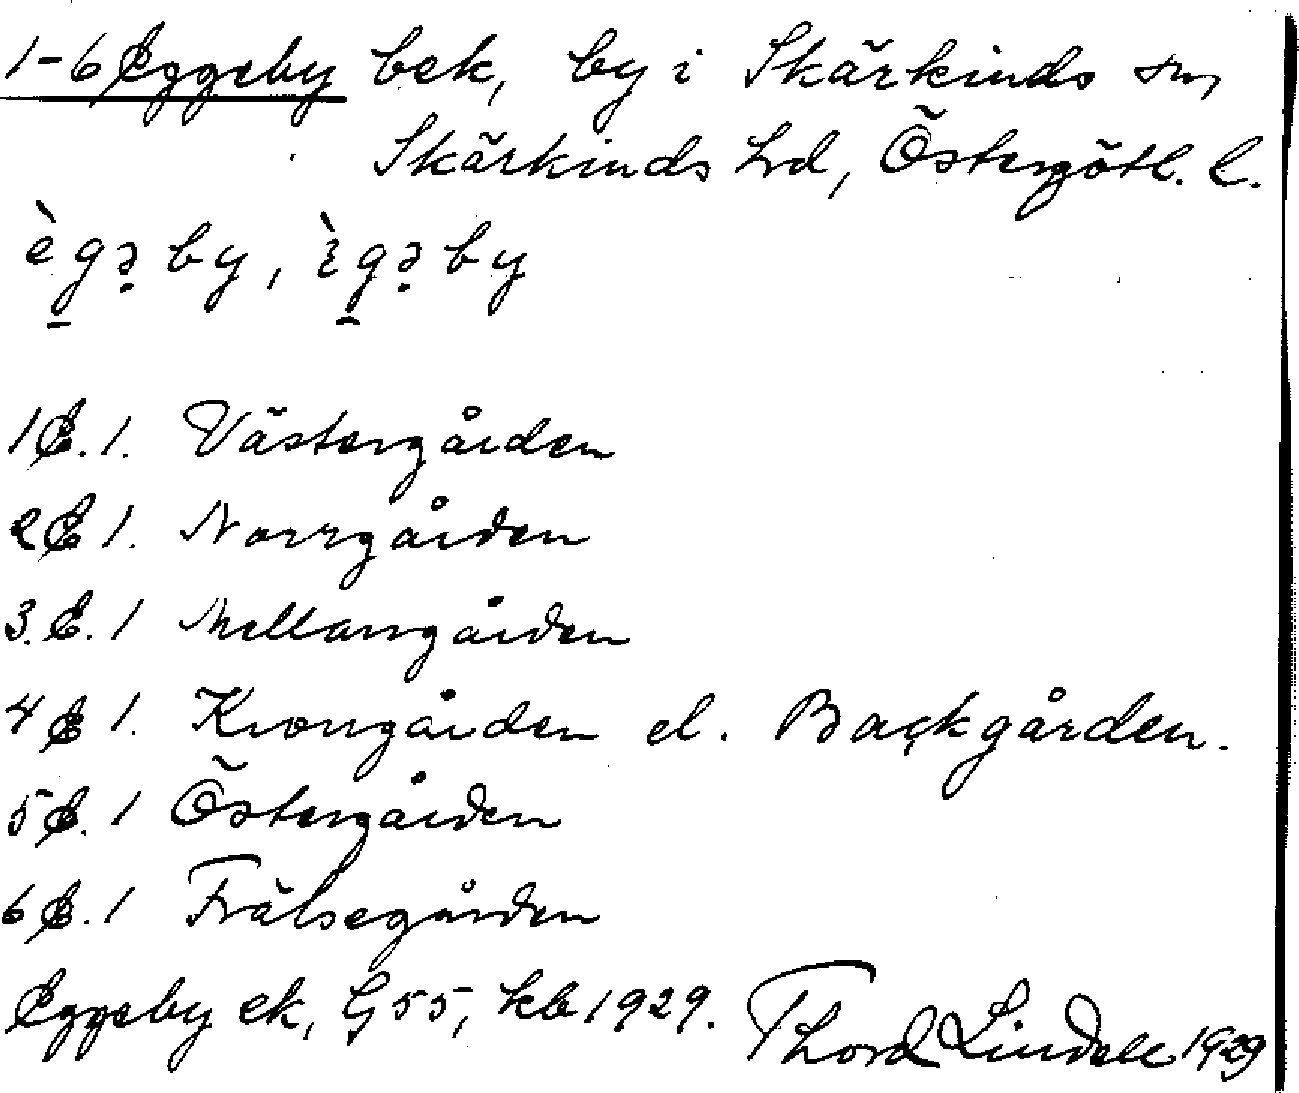 1-6 Eggeby bek, by i Skärkinds sn,
Skärkinds hd, Östergötl. l.
ègə̣by, ɛ̀gə̣by
1 E. 1. Västergården
2 E 1. Norrgården
3. E. 1 Mellangården
4 E 1. Krongården el. Backgården.
5 E. 1 Östergården
6 E. 1 Frälsegården
Eggeby ek, G 55, kb 1929. Thord Lindell 1929